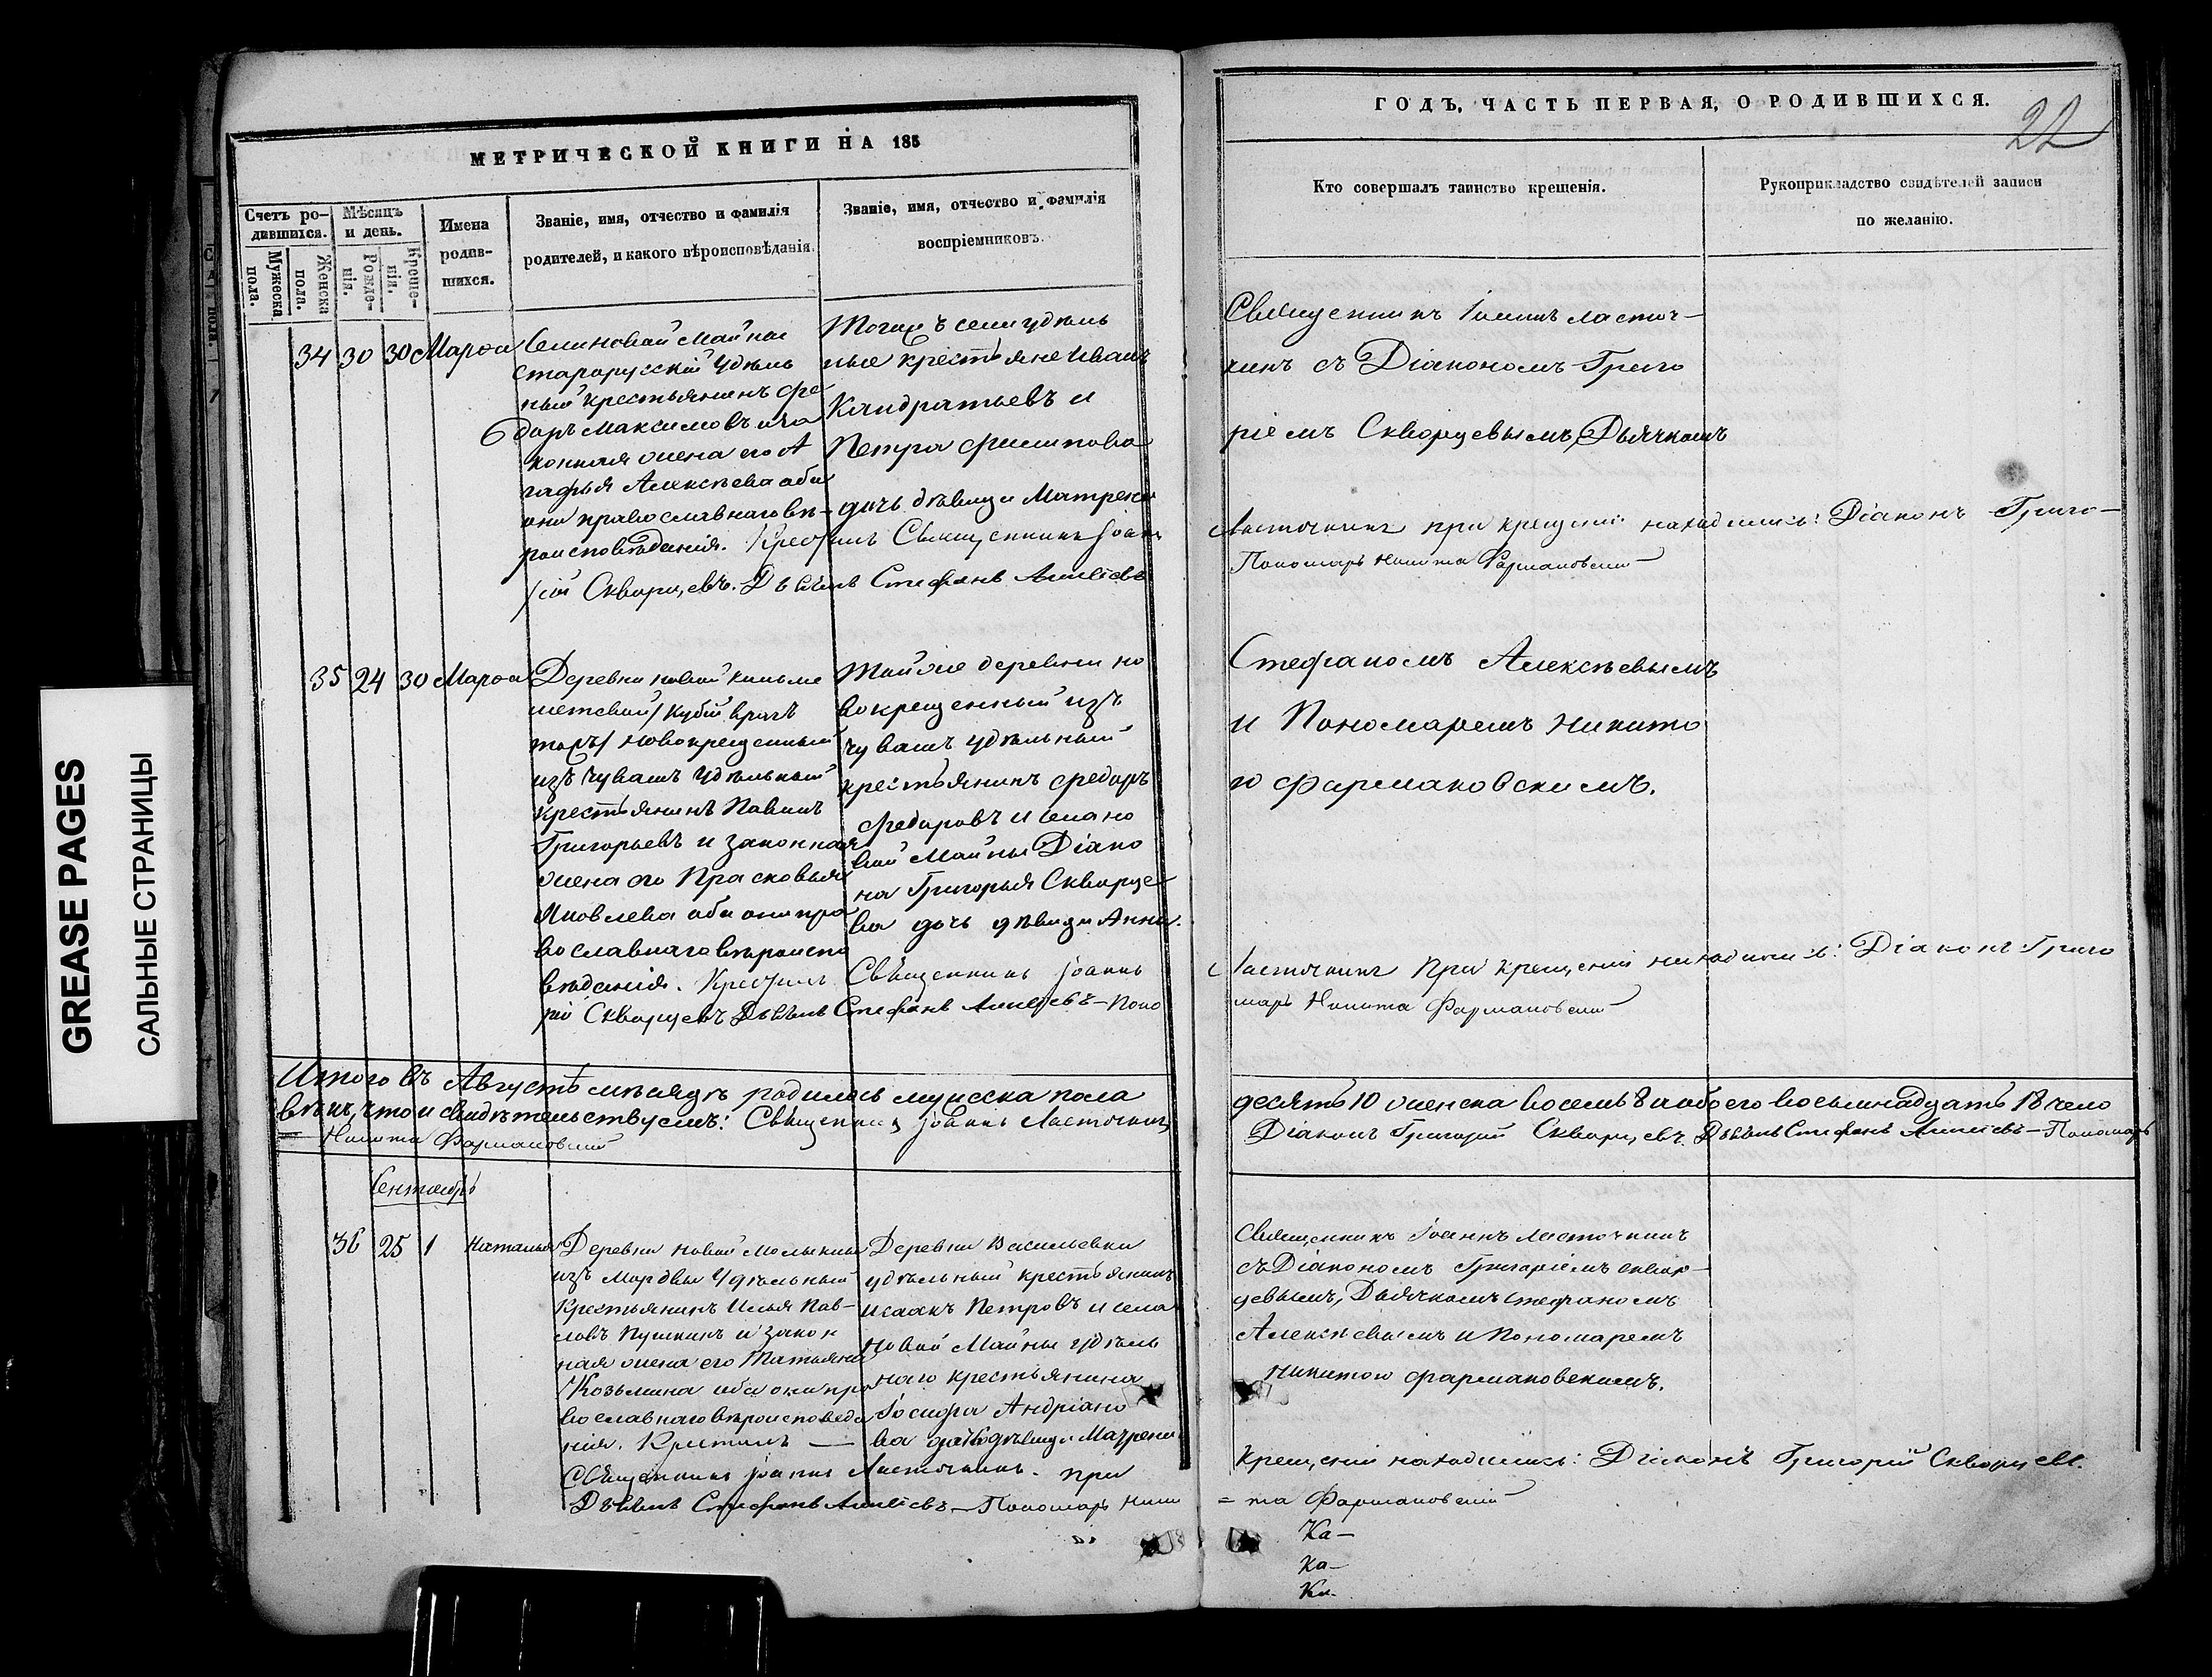 GREASE PAGES
САЛЬНЫЕ СТРАНИЦЫ
МЕТРИЧЕСКОЙ КНИГИ НА 185
Счетъ родившихся.
Мужеска пола.
Женска пола.
Мѣсяцъ и день.
Рожденія.
Крещенія.
Имена родившихся.
Званіе, имя, отчество и фамилія
родителей, и какого вѣроисповѣданія.
Званіе, имя, отчество и фамилія
воспріемниковъ.
34 30 30 Марѳа
Села Новой Майны
старорусскій удѣль
ный крестьянинъ Фе
доръ Максимовъ и за
конная жена его А
гафья Алексѣева оба
они православнаго вѣ-
роисповѣданія. Крестилъ Священникъ Іоаннъ
рій Скворцевъ. Дьячекъ Стефанъ Алексѣевъ
Тогожъ села удѣль
ные крестьяне Иванъ
Кандратьевъ и
Петра Филипова
дочь дѣвица Матрена
35 24 30 Марѳа
Деревни новой
новокрещенный
изъ чувашъ удѣльный
крестьянинъ Павилъ
Григорьевъ и законная
жена его Прасковья
Яковлева оба они пра
вославнаго вѣроиспо
вѣданія. Крестилъ Священникъ Іоаннъ
рій Скворцевъ Дьячекъ Стефанъ Алексѣевъ - Поно
Той же деревни но
вокрещенный изъ
чувашъ удѣльный
крестьянинъ Федоръ
Федоровъ и села но
вой Майны Діако
на Григорья Скворце
ва дочь дѣвица Анна.
Итого въ Августѣ мѣсяцѣ родилось мужеска пола
вѣкъ, что и свидѣтельствуемъ: Священникъ Іоаннъ Ласточкинъ
= Никита Фармаковскій
Сентябрь
36 25 1 Наталья
Деревни Новой Малыклы
изъ Мордвы Удѣльный
Крестьянинъ Илья Пав-
ловъ Пушкинъ и закон
ная жена его Татьяна
Козьмина оба они пра
вославнаго вѣроисповѣда
нія. Крестилъ —
Священникъ Іоаннъ Ласточкинъ. при
Дьячекъ Стефанъ Алексѣевъ - Пономарь Ники
Деревни Васильевки
удѣльный крестьянинъ
Исаакъ Петровъ и села
новой Майны удѣль
наго крестьянина
Іосифа Андріано
ва дочь дѣвица Матрена
ГОДЪ, ЧАСТЬ ПЕРВАЯ, О РОДИВШИХСЯ.
22
Кто совершалъ таинство крещенія.
Рукоприкладство свидѣтелей записи
по желанію.
Священникъ Іоаннъ Ласточ-
кинъ съ Діакономъ Григо
ріемъ Скворцевымъ, Дьячкомъ
Ласточкинъ при крещеніи находились: Діаконъ Григо-
Пономарь Никита Фармаковскій
Стефаномъ Алексѣевымъ
и Пономаремъ Никито
ю Фармаковскимъ.
Ласточкинъ При крещеніи находились: Діаконъ Григо
марь Никита Фармаковскій
десять 10 женска восемь 8 и обоего восьмнадцать 18 чело
Діаконъ Григорий Скворцевъ. Дьячекъ Стефанъ Алексѣевъ - Пономарь
Священникъ Іоаннъ Ласточкинъ
съ Діакономъ Григоріемъ Сквор-
цевымъ, Дьячкомъ Стефаномъ
Алексѣевымъ и Пономаремъ
Никитою Фармаковскимъ.
Крещеніи находились: Діаконъ Григорій Скворцевъ.
= та Фармаковскій
Ка-
Ка-
Ка-